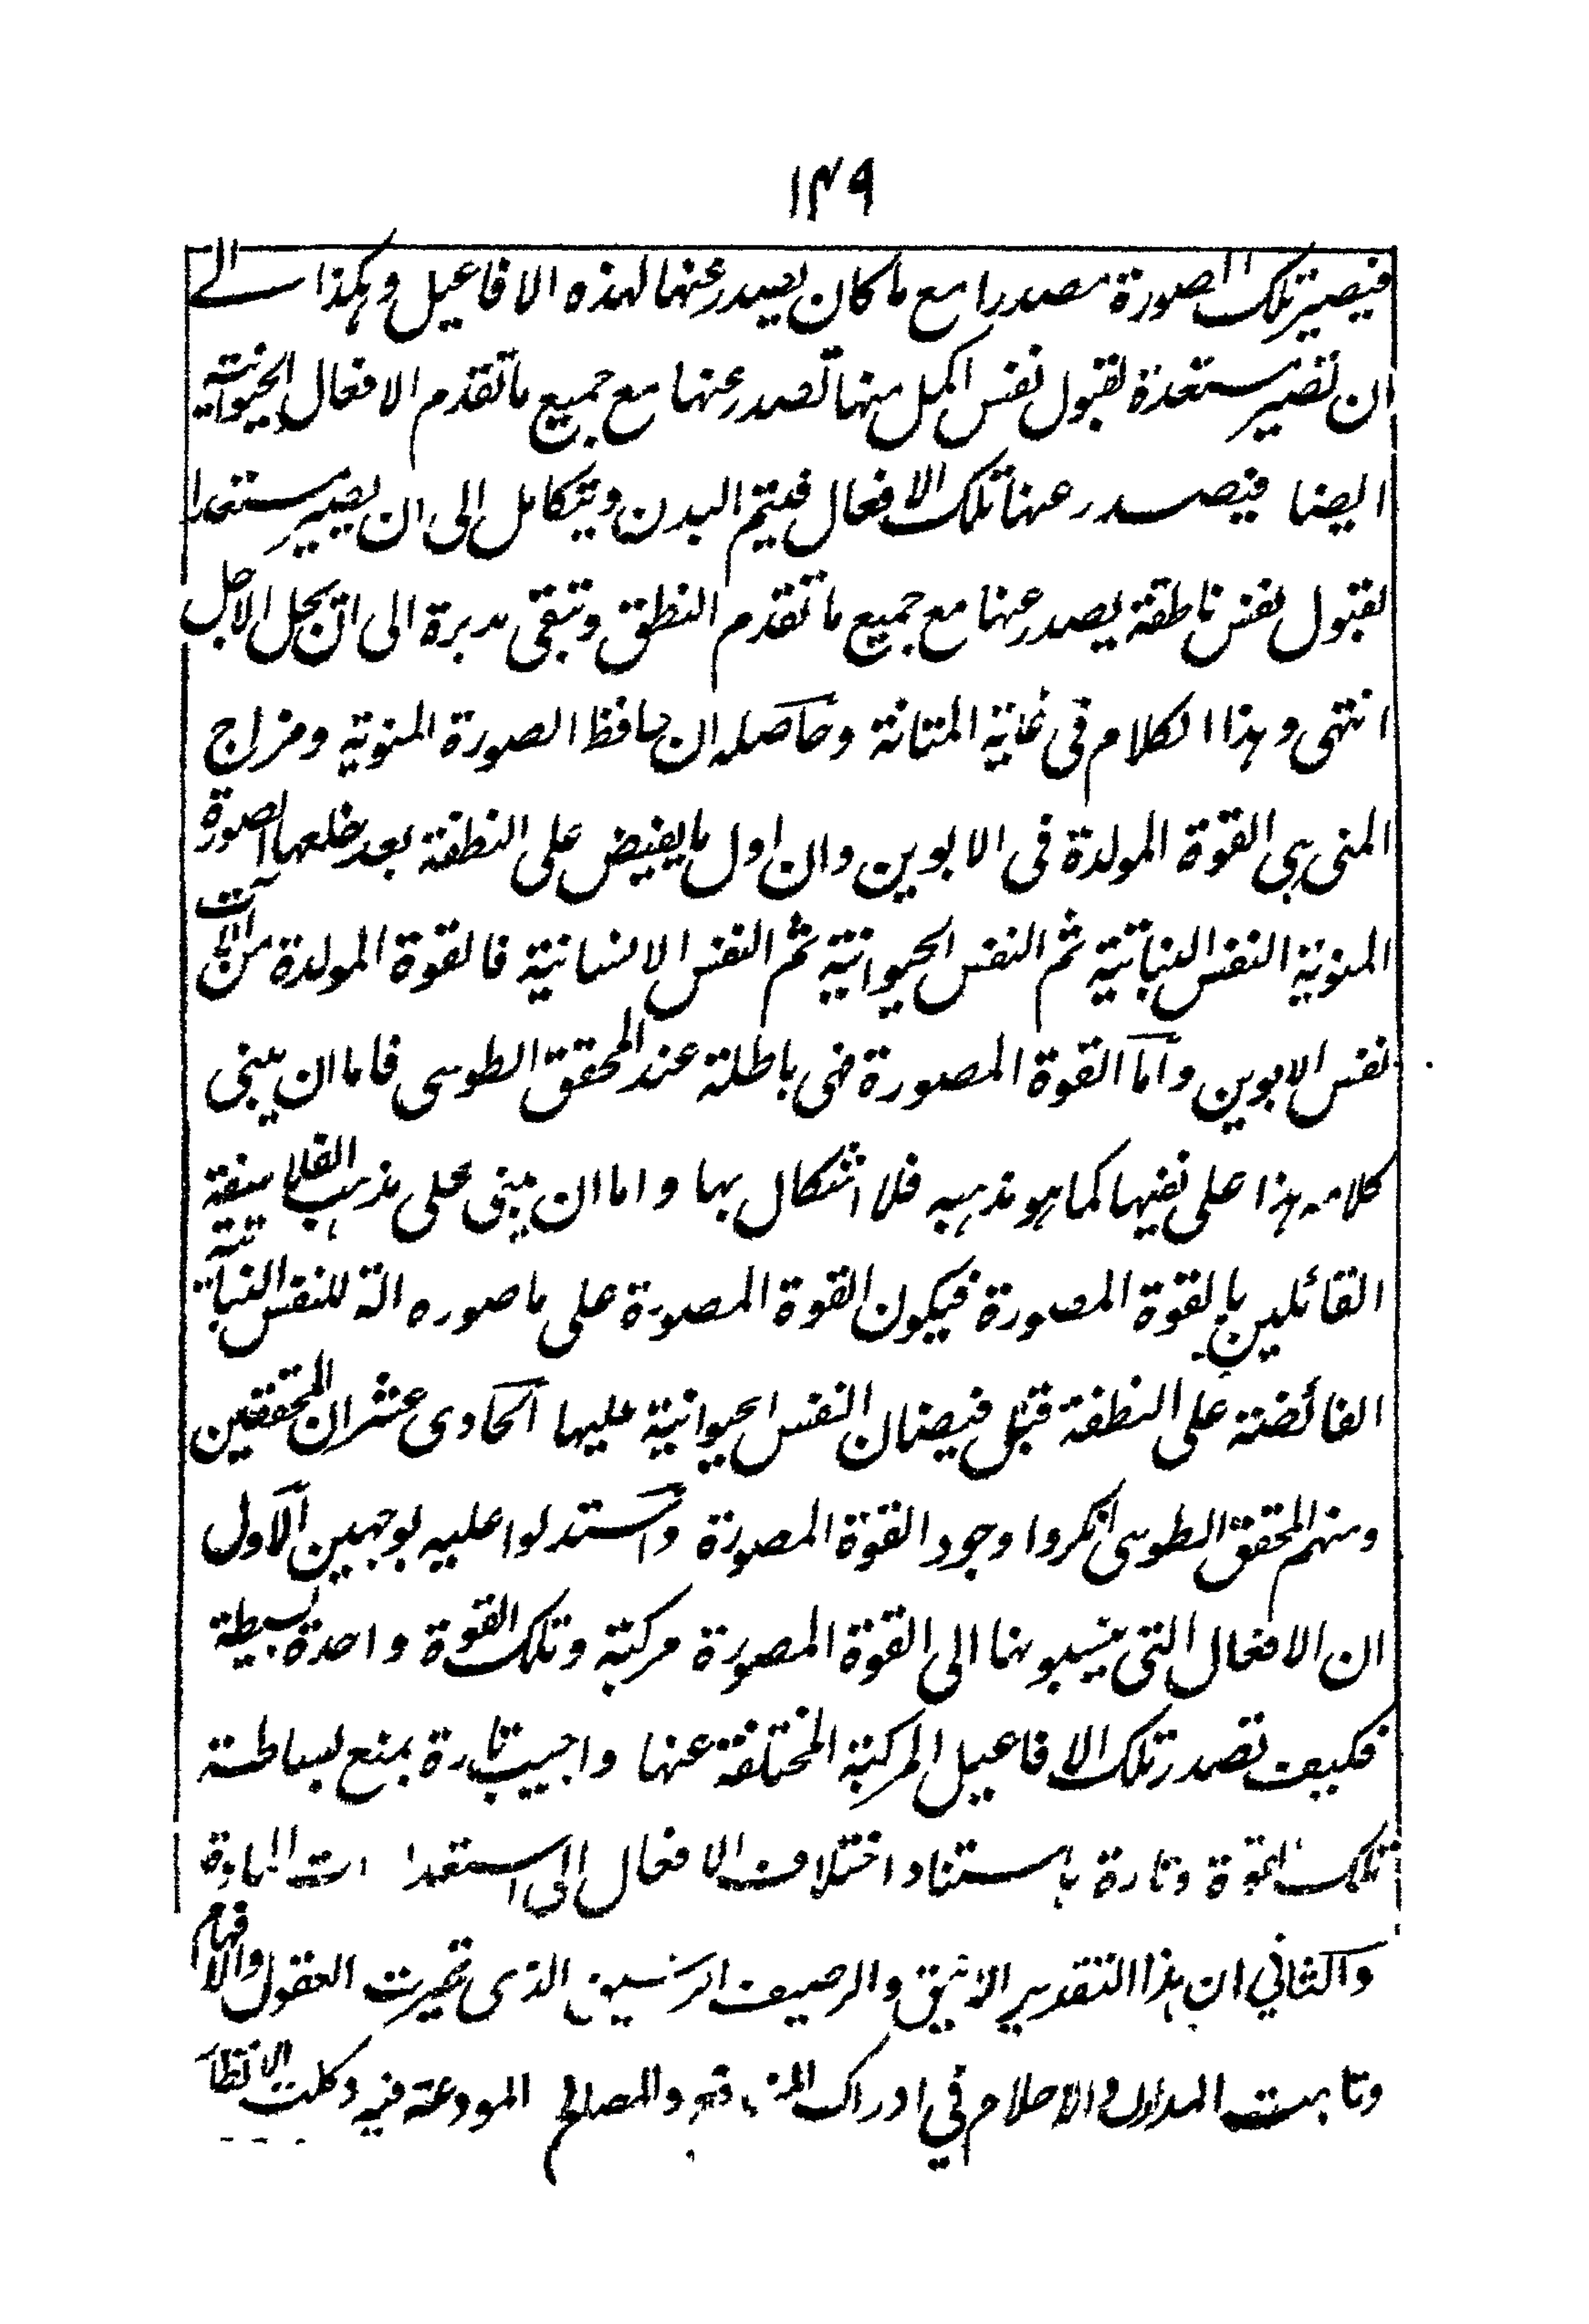 ۱۴۹
فيصير تلك الصورة مصدرا مع ما كان يصدر عنها لهذه الافاعيل وهكذا الے
ان تصير مستعدة لقبول نفس اكمل منها تصدر عنها مع جميع ما تقدم الافعال الحيوانية
ايضا فيصدر عنها تلك الافعال فيتم البدن ويتكامل الى ان يصير مستعدا
لقبول نفس ناطقة يصدر عنها مع جميع ما تقدم النطق وتبقى مدبرة الى ان يحل الاجل
انتهى وهذا الكلام فى غاية المتانة وحاصله ان حافظ الصورة المنوية ومزاج
المنى هى القوة المولدة فى الابوين وان اول ما يفيض على النطفة بعد خلعها الصورة
المنوية النفس النباتية ثم النفس الحيوانية ثم النفس الانسانية فالقوة المولدة من آلات
نفس الابوين واما القوة المصورة فهى باطلة عند المحقق الطوسى فاما ان يبنى
كلامه هذا على نفيها كما هو مذهبه فلا اشكال بها واما ان يبنى على مذهب الفلاسفة
القائلين بالقوة المصورة فيكون القوة المصورة على ما صوره الة للنفس النباتية
الفائضة على النطفة قبل فيضان النفس الحيوانية عليها الحادى عشر ان المحققين
ومنهم المحقق الطوسى انكروا وجود القوة المصورة واستدلوا عليه بوجهين الاول
ان الافعال التى ينسبونها الى القوة المصورة مركبة وتلك القوة واحدة بسيطة
فكيف تصدر تلك الافاعيل المركبة المختلفة عنها واجيب تارة بمنع بساطة
تلك القوة وتارة باستناد اختلاف الافعال الى استعدادات المادة
والثاني ان هذا التقدير الانيق والرصيف الرشيق الذى تحيرت العقول والافهام
وتاهت المدارك والاحلام في ادراك المنافع والمصالح المودعة فيه وكلت الانظار